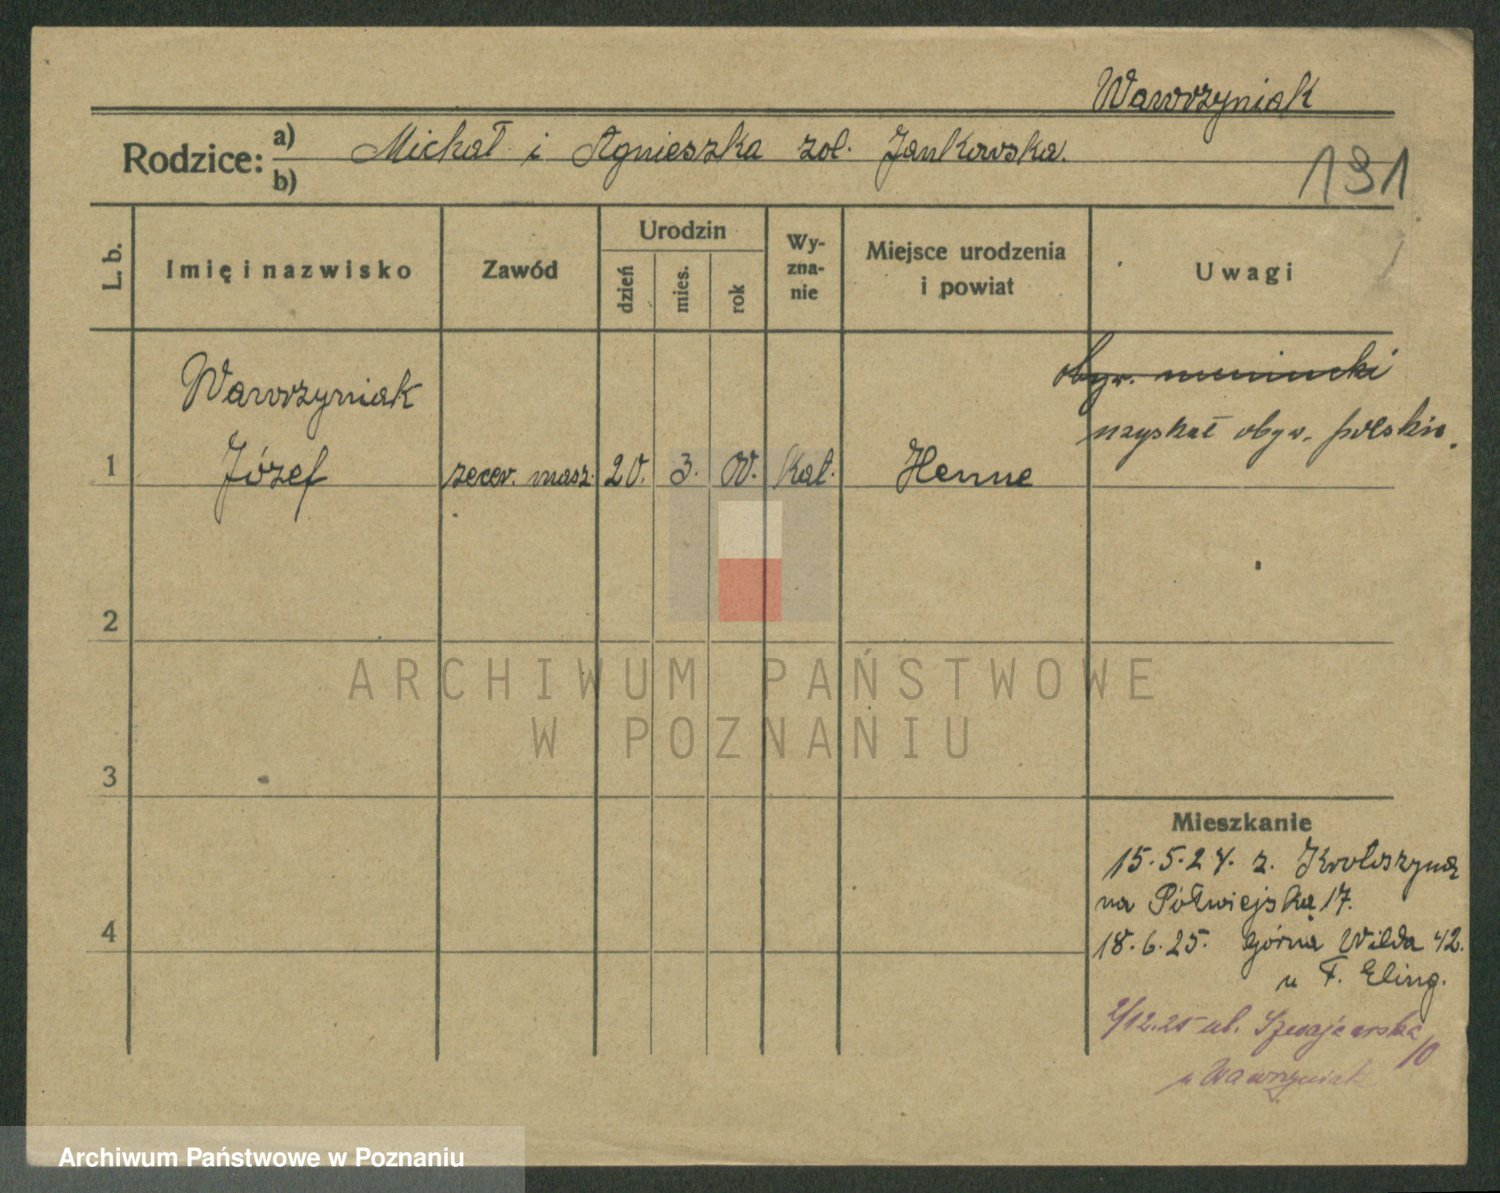 Wawrzyniak
Rodzice: a) b) Michał i Agnieszka zol. Jankowska.
131
L. b.
Imię i nazwisko
Zawód
Urodzin
dzień
mies.
rok
Wy-
zna-
nie
Miejsce urodzenia
i powiat
Uwagi
obyw. niemiecki
uzyskał obyw. polskie.
Wawrzyniak
1 Józef zecer. masz. 20. 3. 00. kat. Herne
2
3
4
Mieszkanie
15.5.24. z. Krotoszyna
na Półwiejską 17.
18.6.25. Górna Wilda 42.
u F. Eling.
2/12.25 ul. Szwajcarska
10
u Wawrzyniak
ARCHIWUM PAŃSTWOWE
W POZNANIU
Archiwum Państwowe w Poznaniu